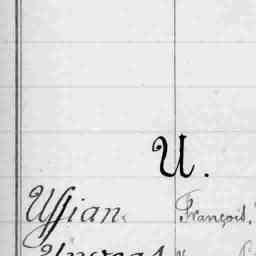 U.
Ussian. François.